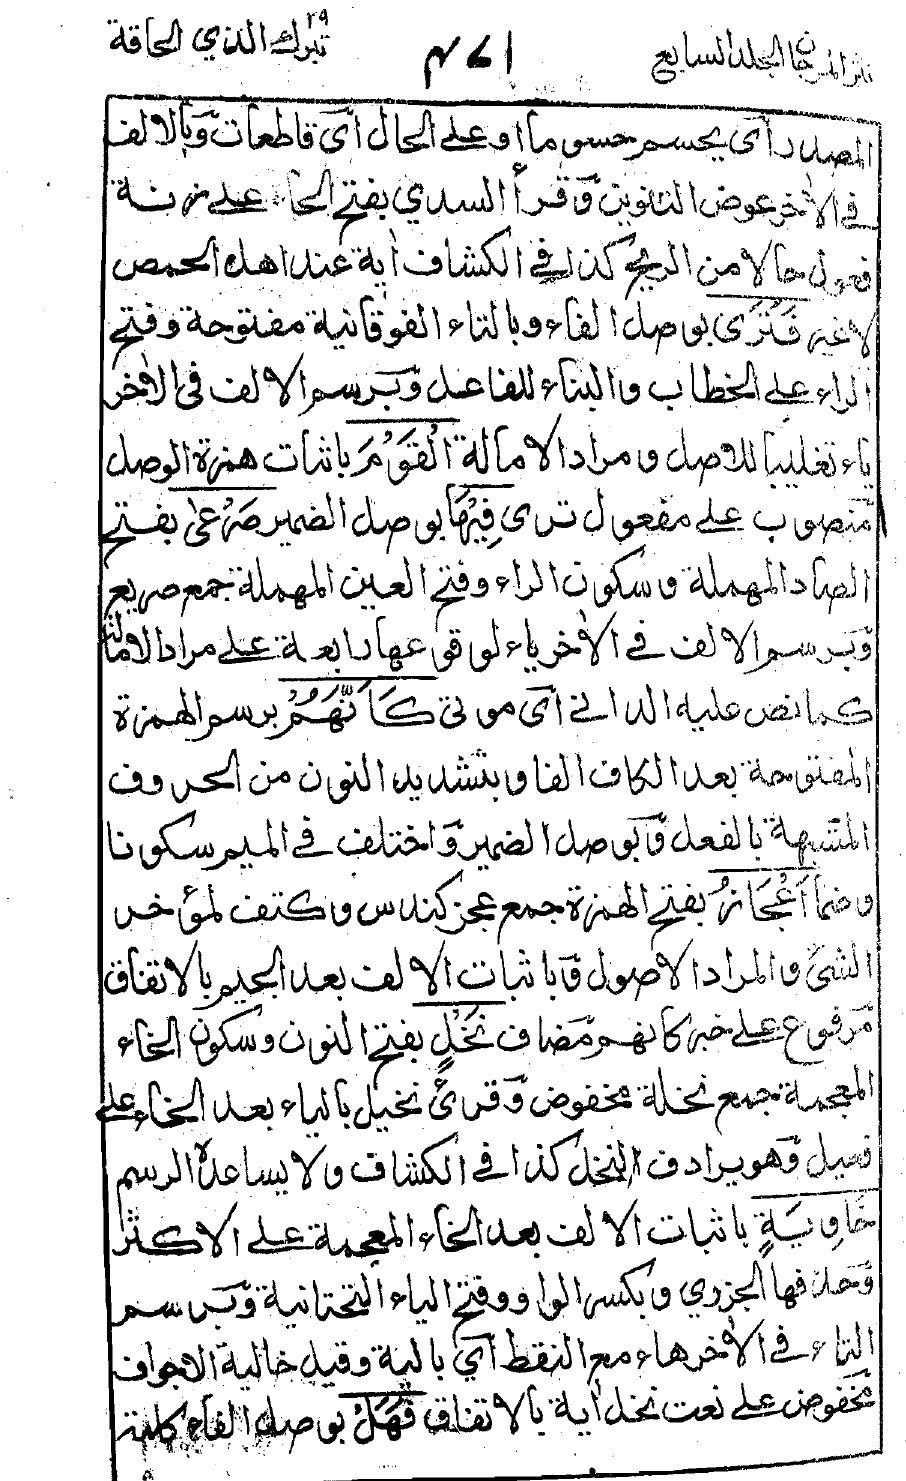 نثر المرجان المجلد السابع
٢٩
تبرك الذي الحاقة
المصدر أي يحسم حسوما أو على الحال أي قاطعات وبالالف
في الآخر عوض التنوين وقرأ السدي بفتح الحاء على زنة
فعول حالا من الريح كذا في الكشاف آية عند اهل الحمص
لا غير فَتَرَى بوصل الفاء وبالتاء الفوقانية مفتوحة وفتح
الراء على الخطاب والبناء للفاعل وبرسم الالف في الآخر
ياء تغليبا للاصل ومراد الامالة الْقَوْمَ باثبات همزة الوصل
منصوب على مفعول ترى فِيْهَا بوصل الضمير صَرْعٰى بفتح
الصاد المهملة وسكون الراء وفتح العين المهملة جمع صريع
وبرسم الالف في الآخر ياء لوقوعها رابعة على مراد الامالة
كما نص عليه الداني أي موتى كَأَنَّهُمْ برسم الهمزة
المفتوحة بعد الكاف الفا وبتشديد النون من الحروف
المشبهة بالفعل وبوصل الضمير واختلف في الميم سكونا
وضما اَعْجَازُ بفتح الهمزة جمع عجز كندس وكتف لمؤخر
الشئ والمراد الاصول وباثبات الالف بعد الجيم بالاتفاق
مرفوع على خبر كأنهم مضاف نَخْلٍ بفتح النون وسكون الخاء
المعجمة جمع نخلة مخفوض وقرئ نخيل بالياء بعد الخاء على
فعيل وهو يرادف النخل كذا في الكشاف ولا يساعده الرسم
خَاوِيَةٍ باثبات الالف بعد الخاء المعجمة على الاكثر
وحذفها الجزري وبكسر الواو وفتح الياء التحتانية وبرسم
التاء في الآخر هاء مع النقط أي بالية وقيل خالية الاجواف
مخفوض على نعت نخل آية بالاتفاق فَهَلْ بوصل الفاء كلمة